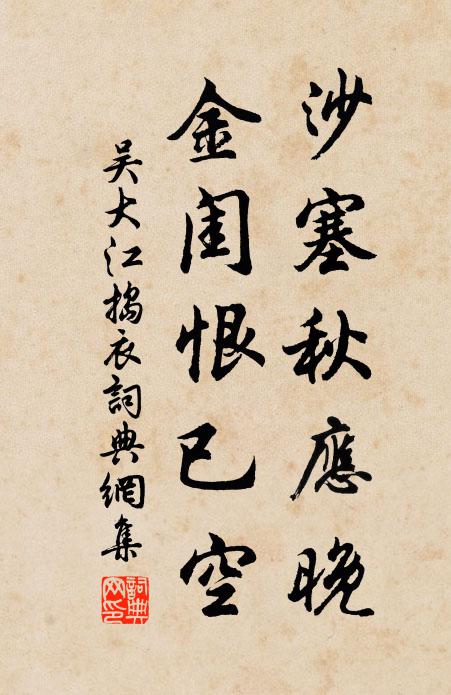 沙塞秋應晚
金闺恨已空
吴大江搗衣詞典網集
詞典
网印